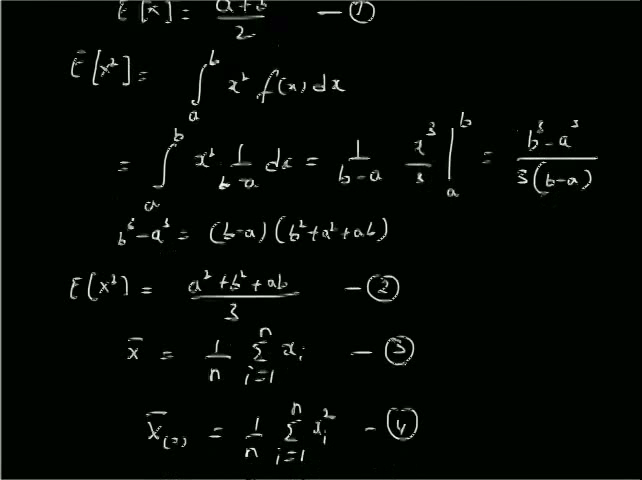 E[x] = a+b/2 — ①
E[x²] = ∫ₐᵇ x² f(x) dx
= ∫ₐᵇ x² 1/b-a dx = 1/b-a x³/3 |ₐᵇ = b³-a³/3(b-a)
b³-a³ = (b-a)(b²+a²+ab)
E[x²] = a²+b²+ab/3 — ②
x̄ = 1/n Σᵢ₌₁ⁿ xᵢ — ③
X̄₍₂₎ = 1/n Σᵢ₌₁ⁿ xᵢ² — ④